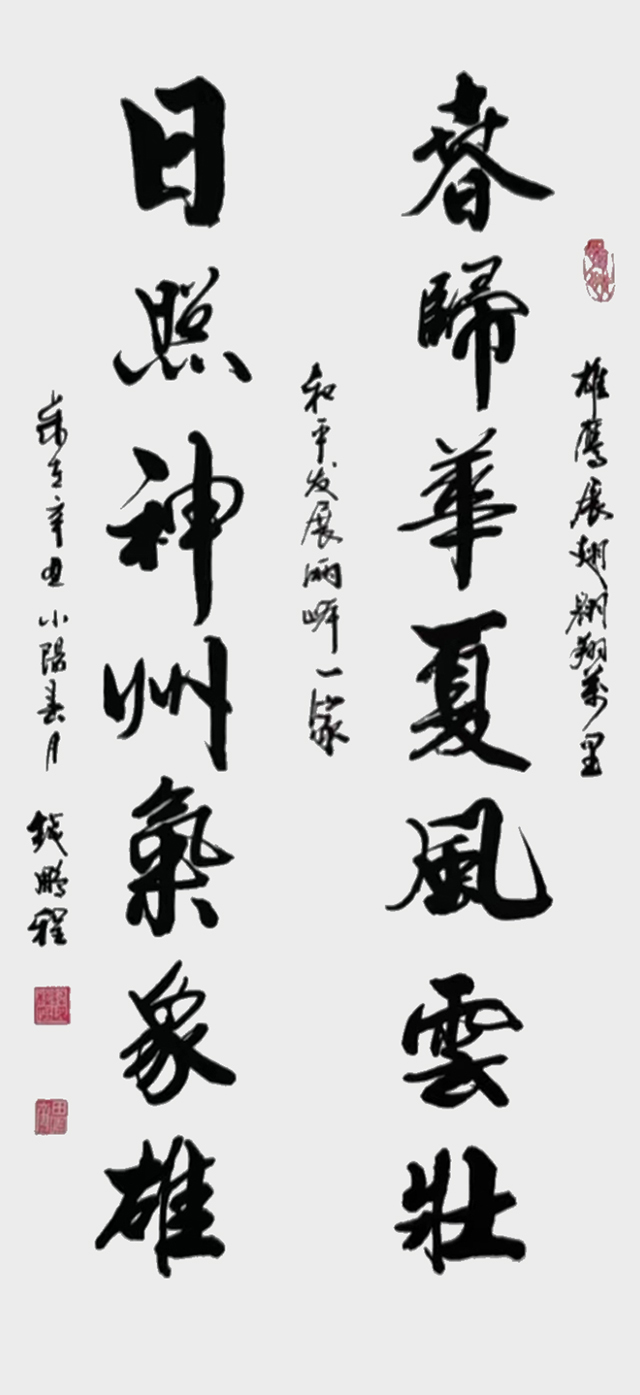 雄鹰展翅翱翔萬里
春歸華夏風雲壯
和平发展两岸一家
日照神州氣象雄
歲在辛丑小陽春月
钱鹏程